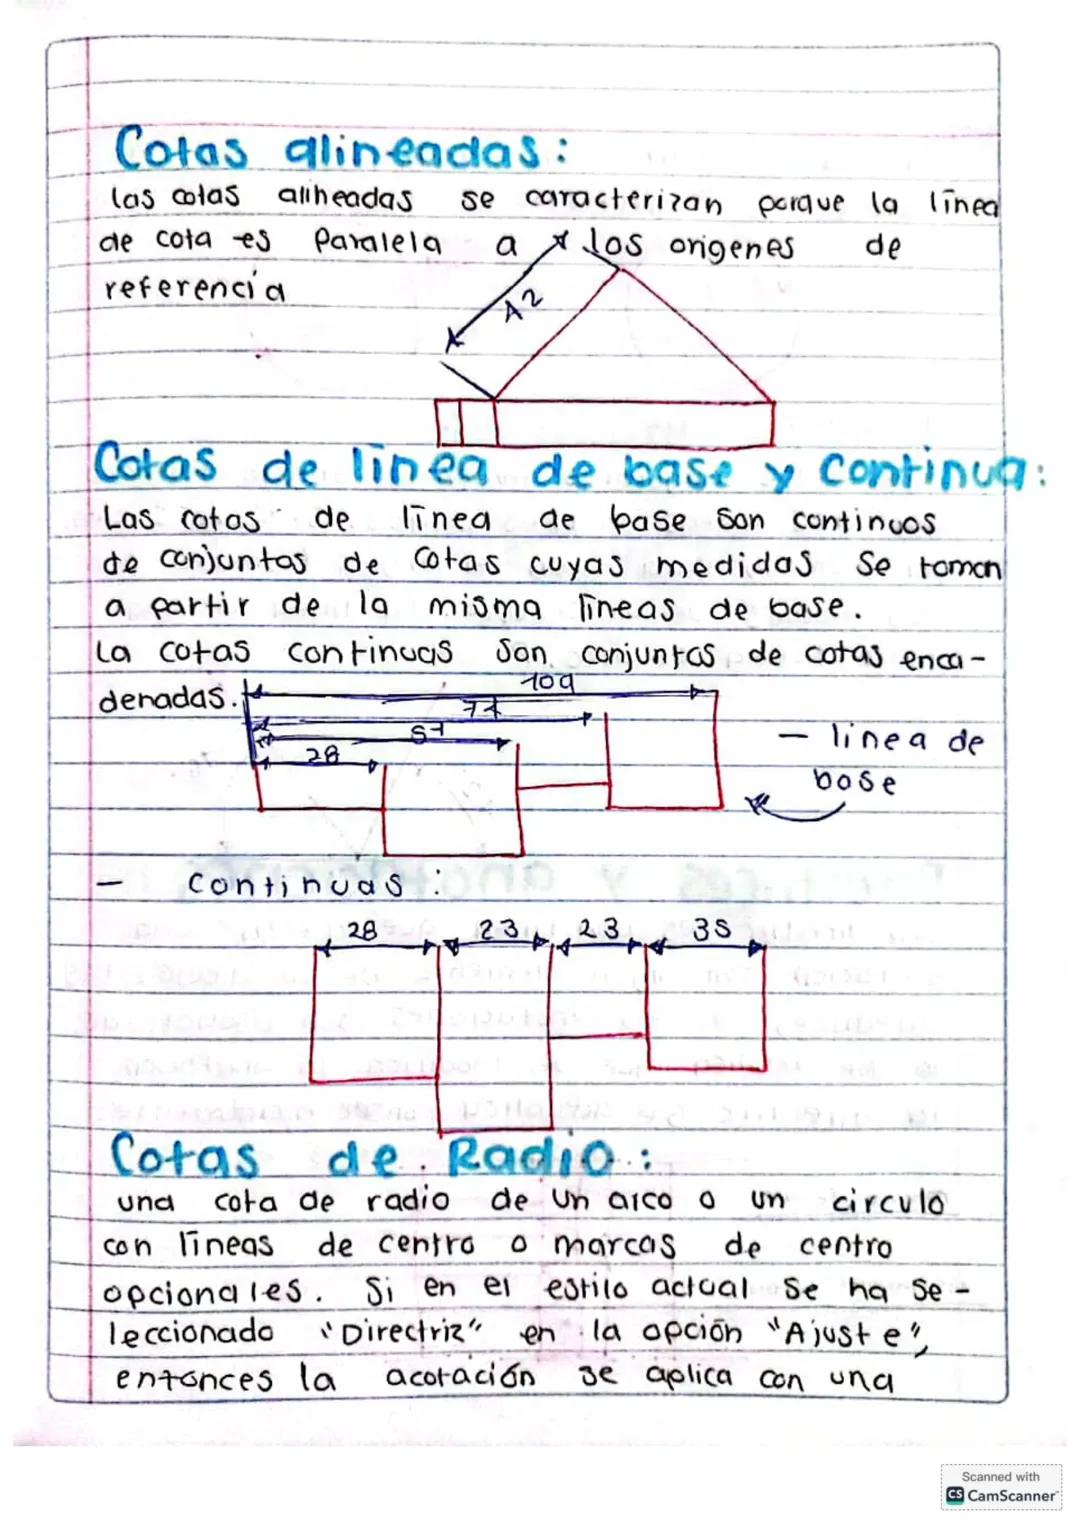 Cotas alineadas:
las cotas alineadas se caracterizan porque la línea
de cota es Paralela a los origenes de
referencia
A2
Cotas de línea de base y Continua:
Las cotas de línea de base son continuos
de conjuntos de cotas cuyas medidas se toman
a partir de la misma líneas de base.
La cotas continuas son conjuntos de cotas enca-
denadas.
109
77
57
28
- linea de
base
- Continuas:
28 23 23 35
Cotas de Radio:
una cota de radio de un arco o un circulo
con líneas de centro o marcas de centro
opcionales. Si en el estilo actual se ha se-
leccionado "Directriz" en la opción "Ajuste",
entonces la acotación se aplica con una
Scanned with
CS CamScanner